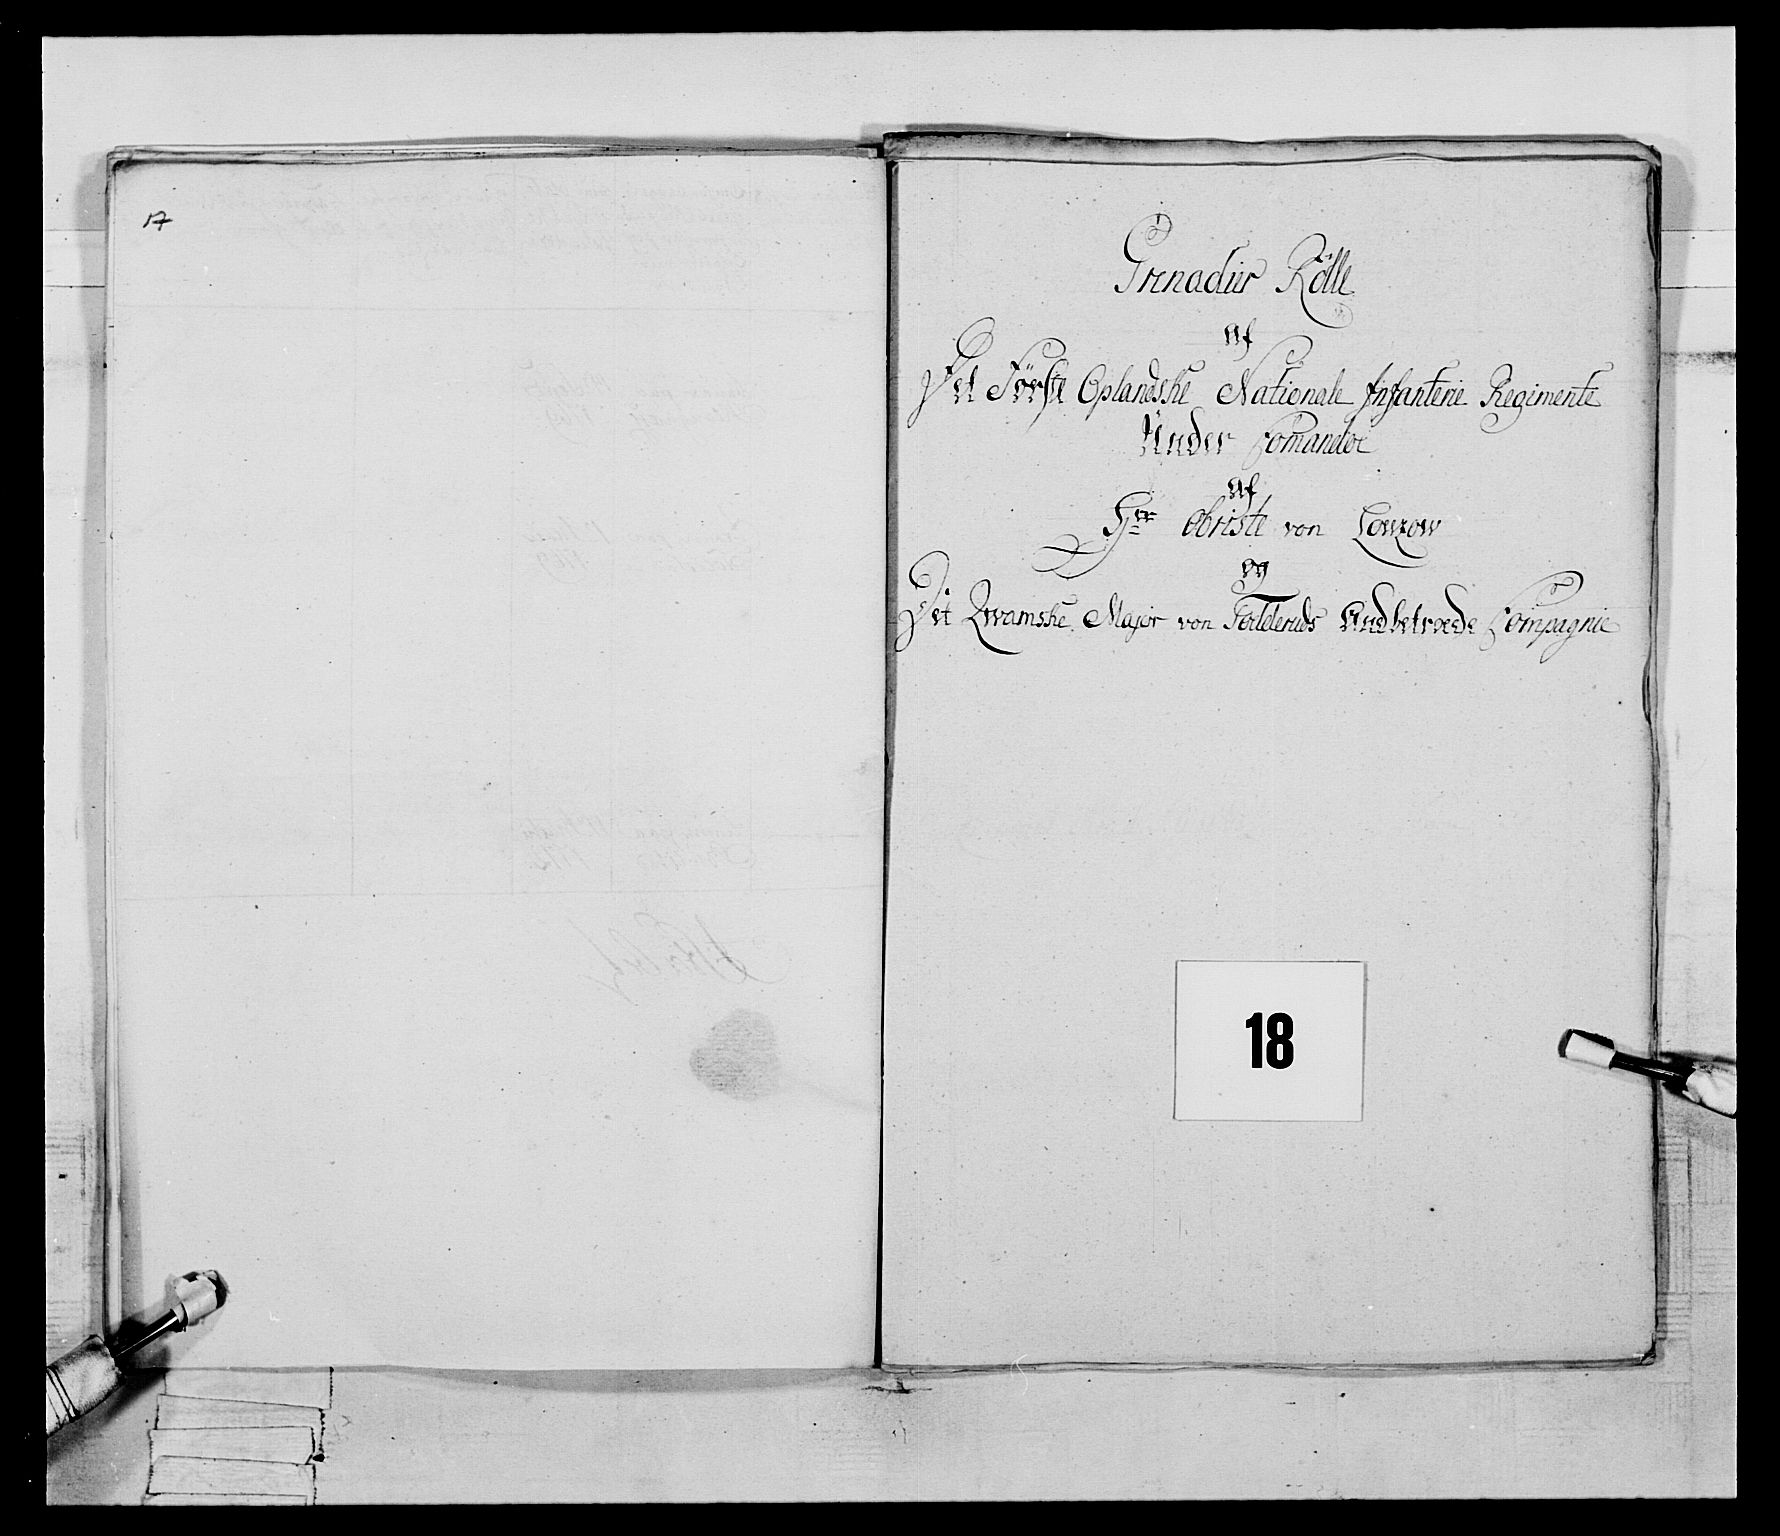 17
Grenadiir Rölle
af
Det Förste Oplandske Nationale Infanterie Regimente
Under Comandoe
af
Hrr Obriste von Lowzow
og
Det Qvamske Major von Undbetroede Compagnie
18